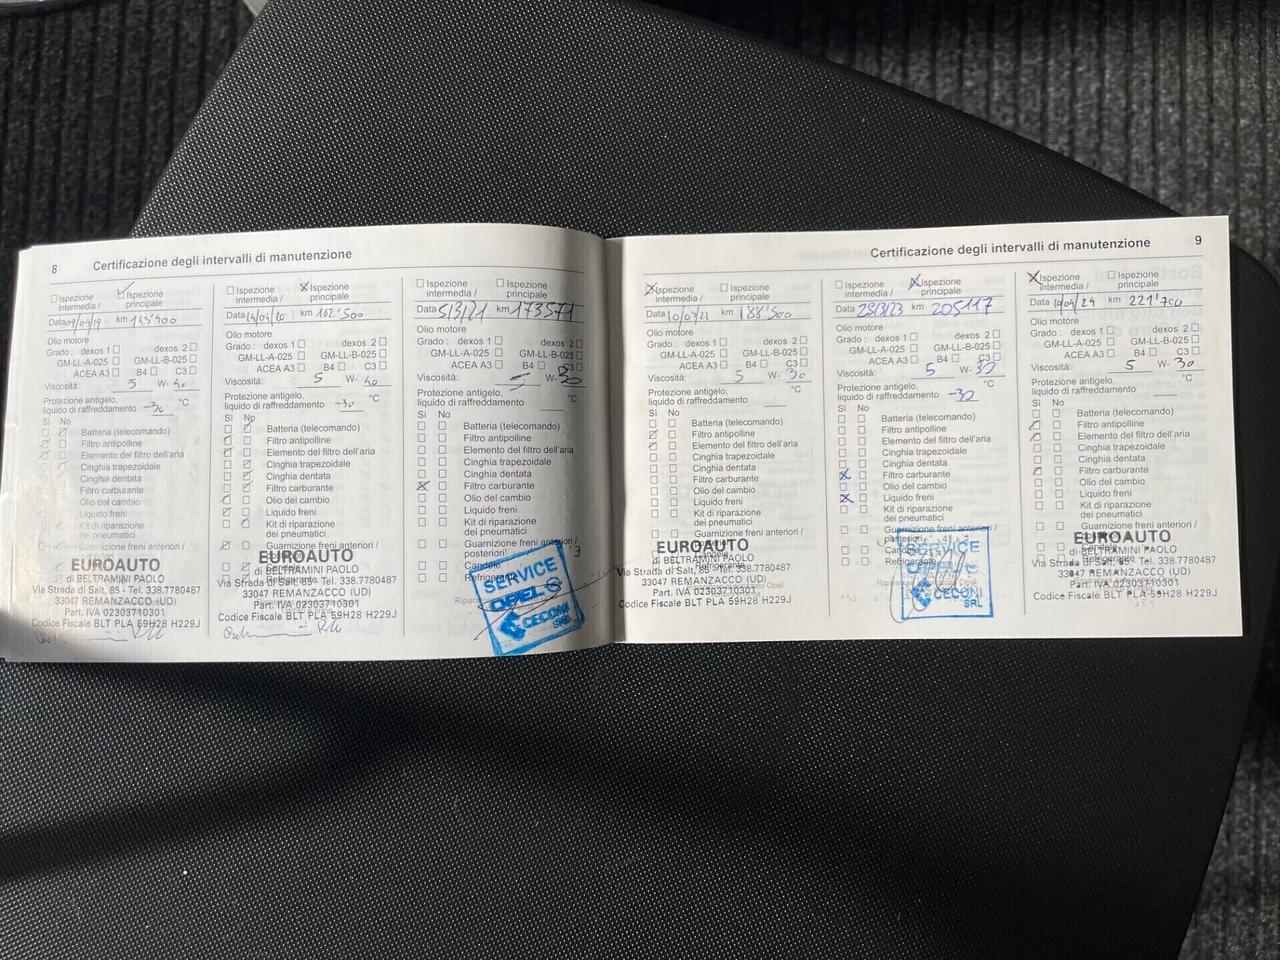 8 Certificazione degli intervalli di manutenzione
Ispezione intermedia / Ispezione principale
Data km
Olio motore
Grado : dexos 1 dexos 2
GM-LL-A-025 GM-LL-B-025
ACEA A3 B4 C3
Viscosità: 5 W- 40
Protezione antigelo,
liquido di raffreddamento -30 °C
Sì No
Batteria (telecomando)
Filtro antipolline
Elemento del filtro dell'aria
Cinghia trapezoidale
Cinghia dentata
Filtro carburante
Olio del cambio
Liquido freni
Kit di riparazione
dei pneumatici
Guarnizione freni anteriori /
EUROAUTO
di BELTRAMINI PAOLO
Via Strada di Salt, 85 - Tel. 338.7780487
33047 REMANZACCO (UD)
Part. IVA 02303710301
Codice Fiscale BLT PLA 59H28 H229J
Ispezione intermedia / Ispezione principale
Data km 162'500
Olio motore
Grado : dexos 1 dexos 2
GM-LL-A-025 GM-LL-B-025
ACEA A3 B4 C3
Viscosità: 5 W- 40
Protezione antigelo,
liquido di raffreddamento -30 °C
Sì No
Batteria (telecomando)
Filtro antipolline
Elemento del filtro dell'aria
Cinghia trapezoidale
Cinghia dentata
Filtro carburante
Olio del cambio
Liquido freni
Kit di riparazione
dei pneumatici
Guarnizione freni anteriori /
EUROAUTO
di BELTRAMINI PAOLO
Via Strada di Salt, 85 - Tel. 338.7780487
33047 REMANZACCO (UD)
Part. IVA 02303710301
Codice Fiscale BLT PLA 59H28 H229J
Ispezione intermedia / Ispezione principale
Data 5/3/21 km 173571
Olio motore
Grado : dexos 1 dexos 2
GM-LL-A-025 GM-LL-B-025
ACEA A3 B4 C3
Viscosità: 5 W- 30
Protezione antigelo,
liquido di raffreddamento °C
Sì No
Batteria (telecomando)
Filtro antipolline
Elemento del filtro dell'aria
Cinghia trapezoidale
Cinghia dentata
Filtro carburante
Olio del cambio
Liquido freni
Kit di riparazione
dei pneumatici
Guarnizione freni anteriori /
posteriori
Candele
Refrigerante
SERVICE
OPEL
CECONI
SRL
Certificazione degli intervalli di manutenzione 9
Ispezione intermedia / Ispezione principale
Data km 188'500
Olio motore
Grado : dexos 1 dexos 2
GM-LL-A-025 GM-LL-B-025
ACEA A3 B4 C3
Viscosità: 5 W- 30
Protezione antigelo,
liquido di raffreddamento °C
Sì No
Batteria (telecomando)
Filtro antipolline
Elemento del filtro dell'aria
Cinghia trapezoidale
Cinghia dentata
Filtro carburante
Olio del cambio
Liquido freni
Kit di riparazione
dei pneumatici
EUROAUTO
di BELTRAMINI PAOLO
Via Strada di Salt, 85 - Tel. 338.7780487
33047 REMANZACCO (UD)
Part. IVA 02303710301
Codice Fiscale BLT PLA 59H28 H229J
Ispezione intermedia / Ispezione principale
Data 25/3/23 km 205117
Olio motore
Grado : dexos 1 dexos 2
GM-LL-A-025 GM-LL-B-025
ACEA A3 B4 C3
Viscosità: 5 W- 30
Protezione antigelo,
liquido di raffreddamento -32 °C
Sì No
Batteria (telecomando)
Filtro antipolline
Elemento del filtro dell'aria
Cinghia trapezoidale
Cinghia dentata
Filtro carburante
Olio del cambio
Liquido freni
Kit di riparazione
dei pneumatici
Guarnizione freni anteriori /
SERVICE
CECONI
SRL
Ispezione intermedia / Ispezione principale
Data km 221'700
Olio motore
Grado : dexos 1 dexos 2
GM-LL-A-025 GM-LL-B-025
ACEA A3 B4 C3
Viscosità: 5 W- 30
Protezione antigelo,
liquido di raffreddamento °C
Sì No
Batteria (telecomando)
Filtro antipolline
Elemento del filtro dell'aria
Cinghia trapezoidale
Cinghia dentata
Filtro carburante
Olio del cambio
Liquido freni
Kit di riparazione
dei pneumatici
Guarnizione freni anteriori /
EUROAUTO
di BELTRAMINI PAOLO
Via Strada di Salt, 85 - Tel. 338.7780487
33047 REMANZACCO (UD)
Part. IVA 02303710301
Codice Fiscale BLT PLA 59H28 H229J